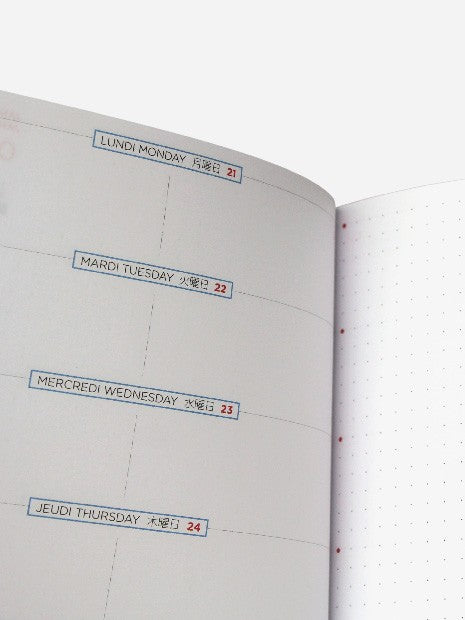 LUNDI MONDAY 月曜日 21
MARDI TUESDAY 火曜日 22
MERCREDI WEDNESDAY 水曜日 23
JEUDI THURSDAY 木曜日 24